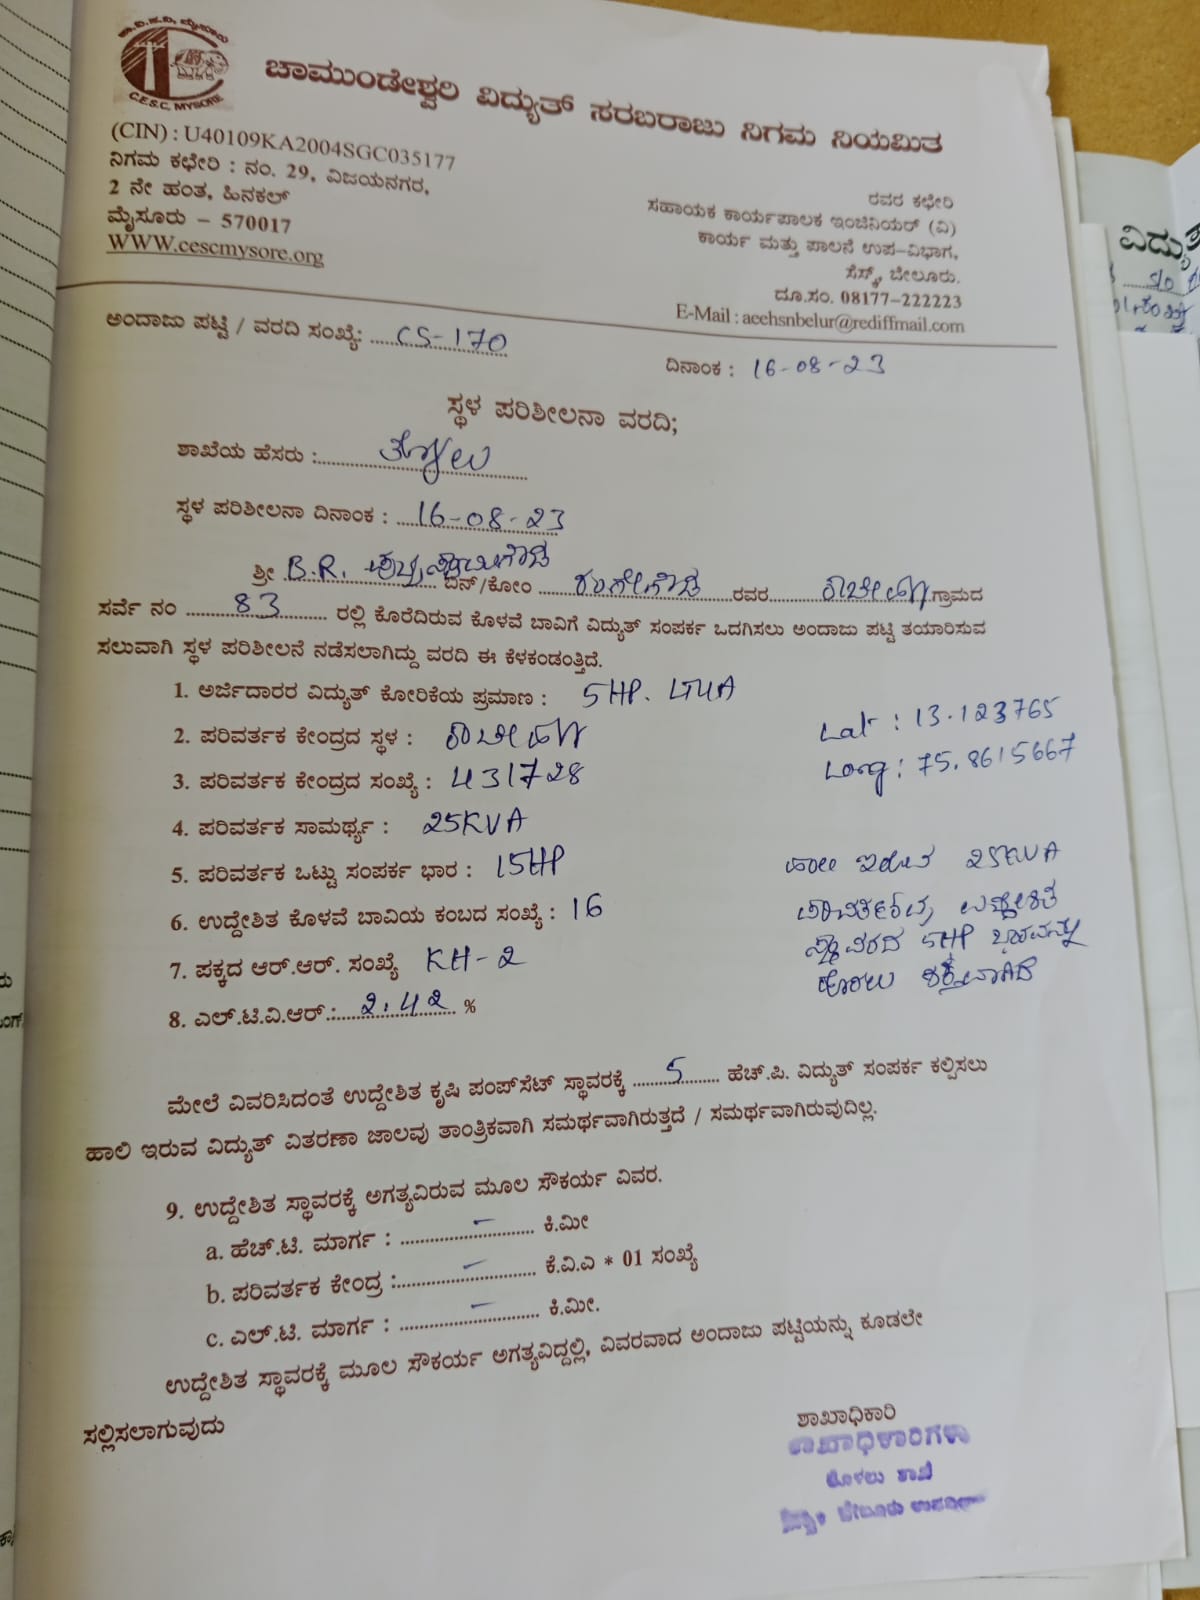 ಚಾಮುಂಡೇಶ್ವರಿ ವಿದ್ಯುತ್ ಸರಬರಾಜು ನಿಗಮ ನಿಯಮಿತ
C.E.S.C. MYSORE
(CIN) : U40109KA2004SGC035177
ನಿಗಮ ಕಛೇರಿ : ನಂ. 29, ವಿಜಯನಗರ,
2 ನೇ ಹಂತ, ಹಿನಕಲ್
ಮೈಸೂರು – 570017
WWW.cescmysore.org
ರವರ ಕಛೇರಿ
ಸಹಾಯಕ ಕಾರ್ಯಪಾಲಕ ಇಂಜಿನಿಯರ್ (ವಿ)
ಕಾರ್ಯ ಮತ್ತು ಪಾಲನೆ ಉಪ-ವಿಭಾಗ,
ಸೆಸ್ಕ್, ಬೇಲೂರು.
ದೂ.ಸಂ. 08177-222223
E-Mail : aeehsnbelur@rediffmail.com
ಅಂದಾಜು ಪಟ್ಟಿ / ವರದಿ ಸಂಖ್ಯೆ: CS-170
ದಿನಾಂಕ : 16-08-23
ಸ್ಥಳ ಪರಿಶೀಲನಾ ವರದಿ;
ಶಾಖೆಯ ಹೆಸರು :
ಸ್ಥಳ ಪರಿಶೀಲನಾ ದಿನಾಂಕ : 16-08-23
ಶ್ರೀ B.R. ಬಿನ್/ಕೋಂ ರಂಗೇಗೌಡ ರವರ ಗ್ರಾಮದ
ಸರ್ವೆ ನಂ 83 ರಲ್ಲಿ ಕೊರೆದಿರುವ ಕೊಳವೆ ಬಾವಿಗೆ ವಿದ್ಯುತ್ ಸಂಪರ್ಕ ಒದಗಿಸಲು ಅಂದಾಜು ಪಟ್ಟಿ ತಯಾರಿಸುವ
ಸಲುವಾಗಿ ಸ್ಥಳ ಪರಿಶೀಲನೆ ನಡೆಸಲಾಗಿದ್ದು ವರದಿ ಈ ಕೆಳಕಂಡಂತ್ತಿದೆ.
1. ಅರ್ಜಿದಾರರ ವಿದ್ಯುತ್ ಕೋರಿಕೆಯ ಪ್ರಮಾಣ : 5HP.
2. ಪರಿವರ್ತಕ ಕೇಂದ್ರದ ಸ್ಥಳ :
Lat : 13.123765
3. ಪರಿವರ್ತಕ ಕೇಂದ್ರದ ಸಂಖ್ಯೆ : 431728
Long : 75.8615667
4. ಪರಿವರ್ತಕ ಸಾಮರ್ಥ್ಯ : 25KVA
5. ಪರಿವರ್ತಕ ಒಟ್ಟು ಸಂಪರ್ಕ ಭಾರ : 15HP
6. ಉದ್ದೇಶಿತ ಕೊಳವೆ ಬಾವಿಯ ಕಂಬದ ಸಂಖ್ಯೆ : 16
7. ಪಕ್ಕದ ಆರ್.ಆರ್. ಸಂಖ್ಯೆ KH-2
8. ಎಲ್.ಟಿ.ವಿ.ಆರ್.: 2.42 %
ಹಾಲಿ ಇರುವ 25KVA
ಪರಿವರ್ತಕವು ಉದ್ದೇಶಿತ
ಸ್ಥಾವರದ 5HP ಭಾರವನ್ನು
ಹೊರಲು ಶಕ್ತವಾಗಿದೆ
ಮೇಲೆ ವಿವರಿಸಿದಂತೆ ಉದ್ದೇಶಿತ ಕೃಷಿ ಪಂಪ್‌ಸೆಟ್ ಸ್ಥಾವರಕ್ಕೆ 5 ಹೆಚ್.ಪಿ. ವಿದ್ಯುತ್ ಸಂಪರ್ಕ ಕಲ್ಪಿಸಲು
ಹಾಲಿ ಇರುವ ವಿದ್ಯುತ್ ವಿತರಣಾ ಜಾಲವು ತಾಂತ್ರಿಕವಾಗಿ ಸಮರ್ಥವಾಗಿರುತ್ತದೆ / ಸಮರ್ಥವಾಗಿರುವುದಿಲ್ಲ.
9. ಉದ್ದೇಶಿತ ಸ್ಥಾವರಕ್ಕೆ ಅಗತ್ಯವಿರುವ ಮೂಲ ಸೌಕರ್ಯ ವಿವರ.
a. ಹೆಚ್.ಟಿ. ಮಾರ್ಗ : – ಕಿ.ಮೀ
b. ಪರಿವರ್ತಕ ಕೇಂದ್ರ : – ಕೆ.ವಿ.ಎ * 01 ಸಂಖ್ಯೆ
c. ಎಲ್.ಟಿ. ಮಾರ್ಗ : – ಕಿ.ಮೀ.
ಉದ್ದೇಶಿತ ಸ್ಥಾವರಕ್ಕೆ ಮೂಲ ಸೌಕರ್ಯ ಅಗತ್ಯವಿದ್ದಲ್ಲಿ, ವಿವರವಾದ ಅಂದಾಜು ಪಟ್ಟಿಯನ್ನು ಕೂಡಲೇ
ಸಲ್ಲಿಸಲಾಗುವುದು
ಶಾಖಾಧಿಕಾರಿ
ಶಾಖಾಧಿಕಾರಿಗಳು
ಶಾಖೆ
ಬೇಲೂರು